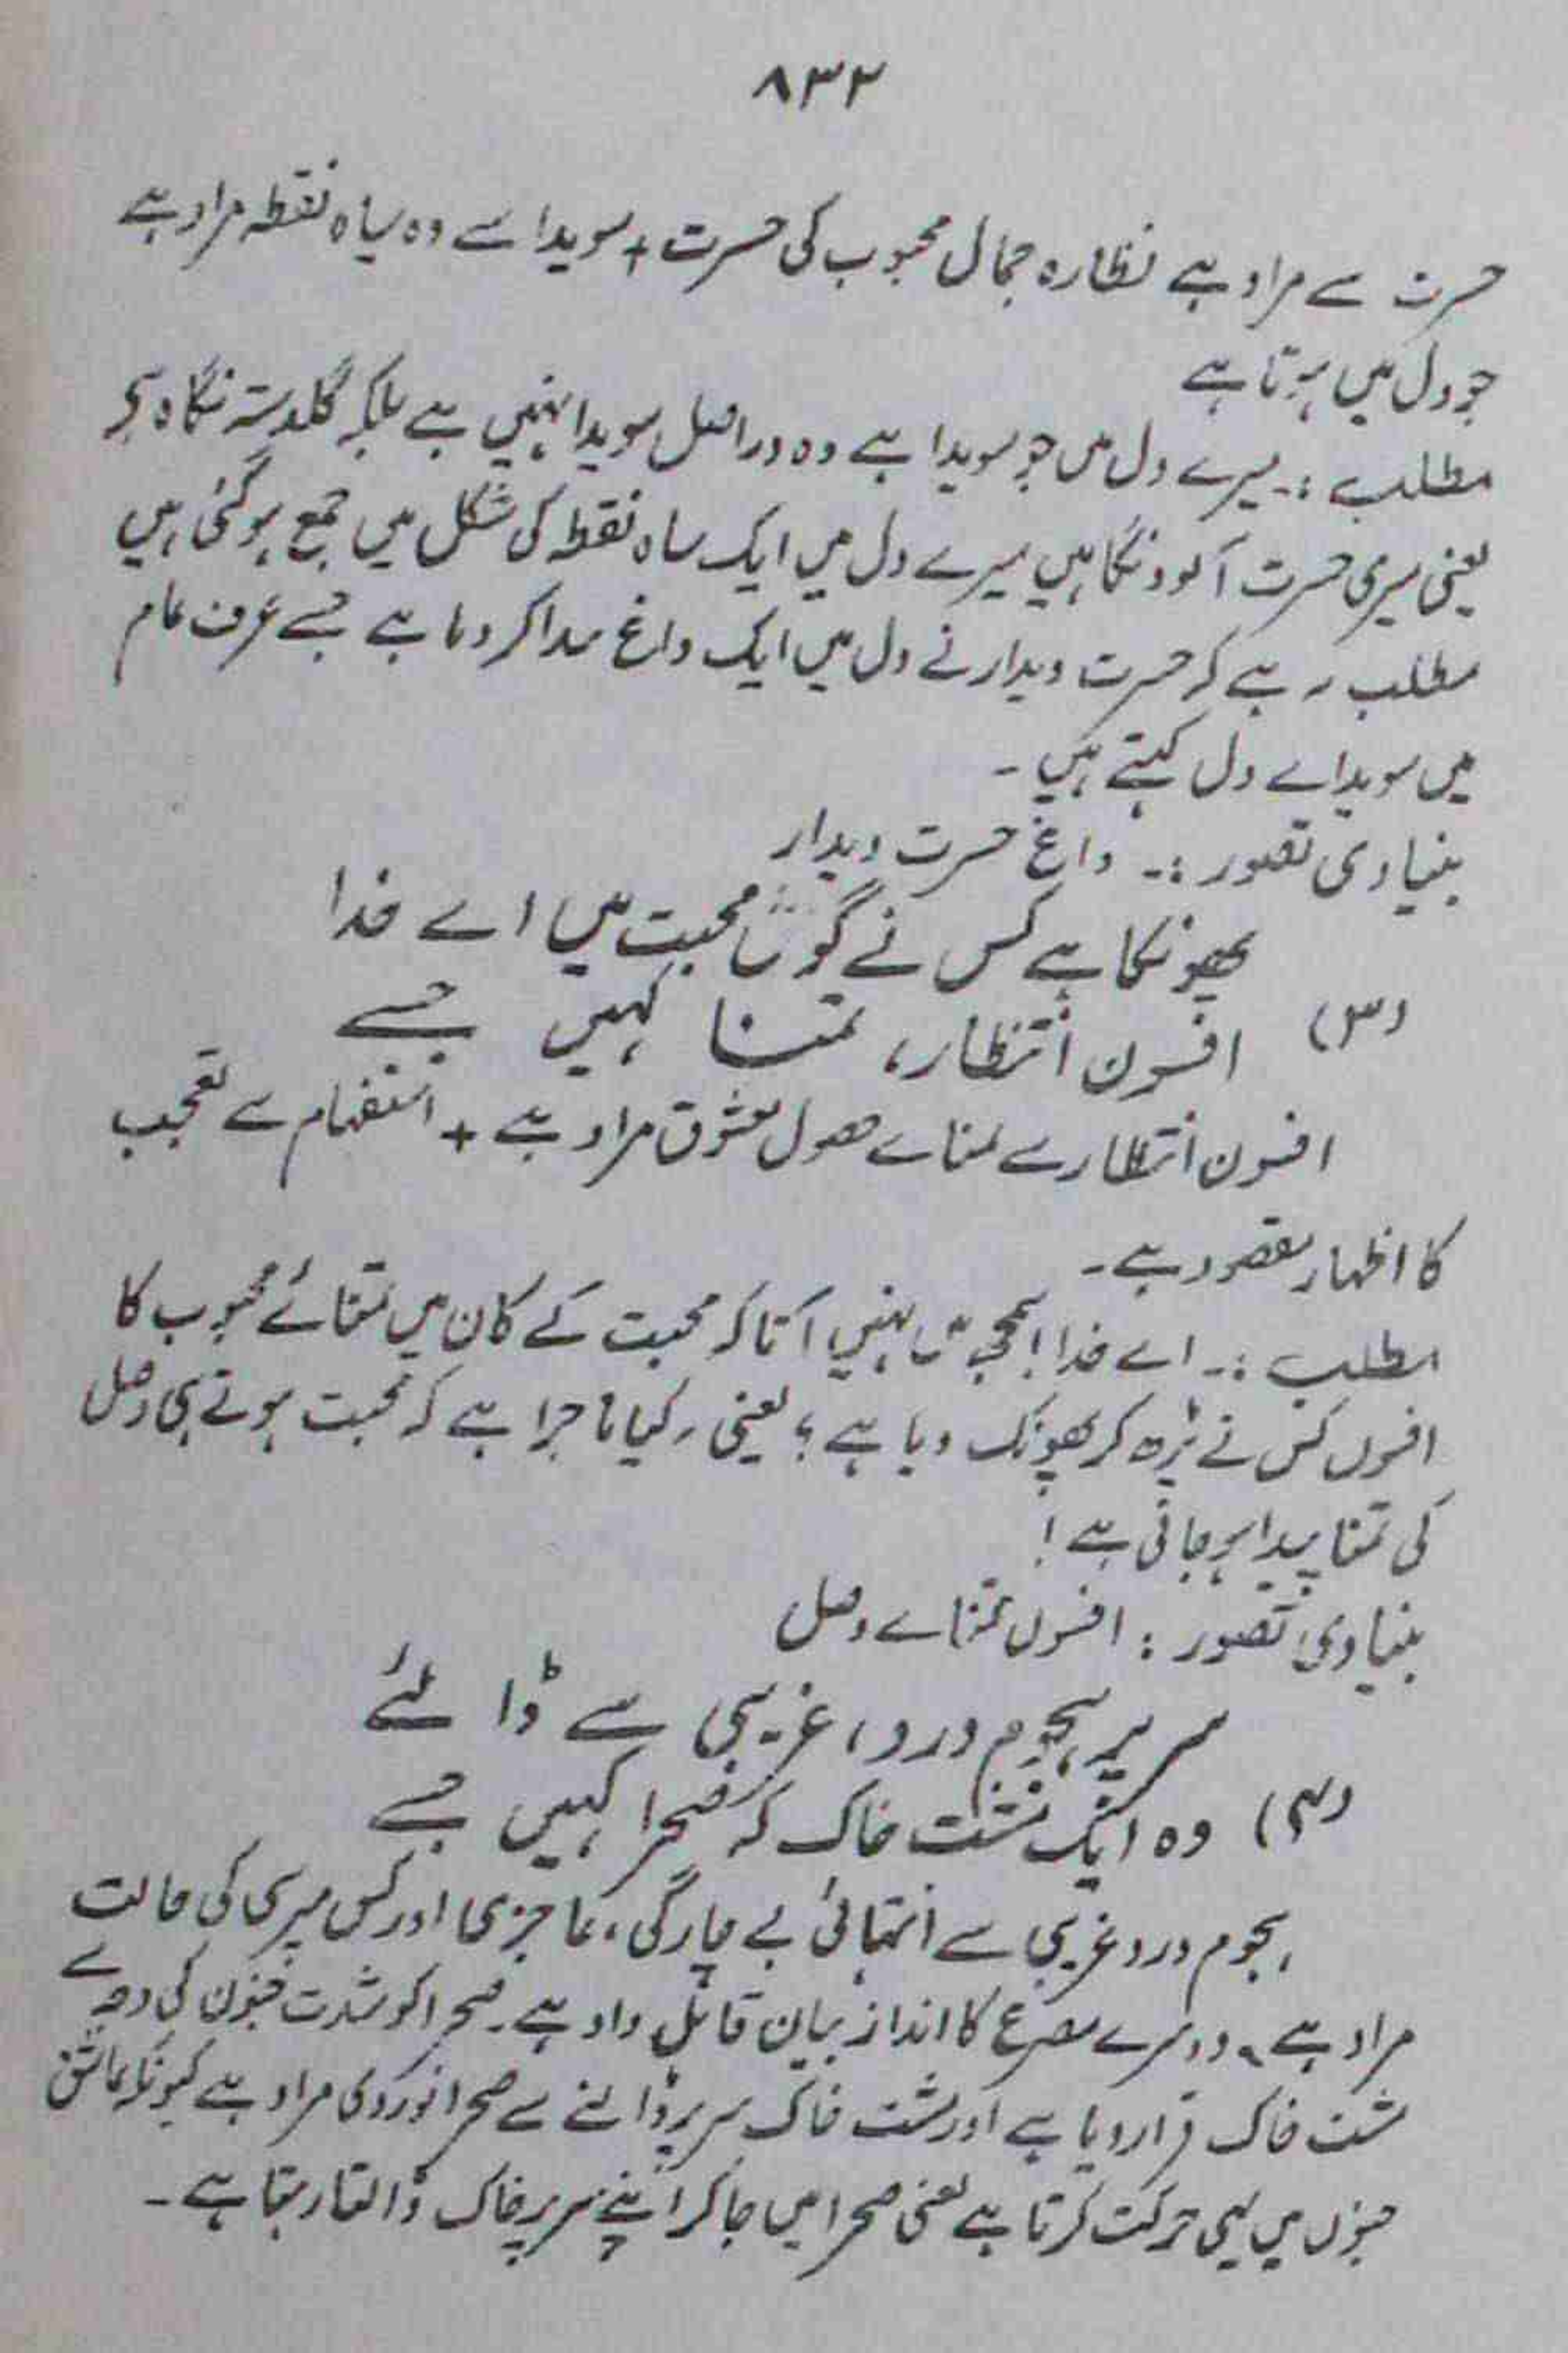 ۸۳۲
حسرت سے مراد ہے نظارہ جمال محبوب کی حسرت + سویدا سے وہ سیاہ نقطہ مراد ہے
جو دل میں ہوتا ہے
مطلب :۔ میرے دل میں جو سویدا ہے وہ دراصل سویدا نہیں ہے بلکہ گلدستہ نگاہ ہے
یعنی میری حسرت آلود نگاہیں میرے دل میں ایک سیاہ نقطہ کی شکل میں جمع ہو گئی ہیں
مطلب یہ ہے کہ حسرت دیدار نے دل میں ایک داغ پیدا کر دیا ہے جسے عرف عام
میں سویداے دل کہتے ہیں ۔
بنیادی تصور :۔ داغ حسرت دیدار
پھونکا ہے کس نے گوش محبت میں اے خدا
(۳) افسون انتظار، تمنا کہیں جسے
افسون انتظار سے تمناے حصول معشوق مراد ہے + استفہام سے تعجب
کا اظہار مقصود ہے ۔
مطلب :۔ اے خدا! سمجھ میں نہیں آتا کہ محبت کے کان میں تمنائے محبوب کا
افسوں کس نے پڑھ کر پھونک دیا ہے ؟ یعنی یہ کیا ماجرا ہے کہ محبت ہوتے ہی وصل
کی تمنا پیدا ہو جاتی ہے !
بنیادی تصور : افسوں تمناے وصل
سر پر ہجوم درد، غریبی سے ڈالئے
(۴) وہ ایک مشت خاک کہ صحرا کہیں جسے
ہجوم درد غریبی سے انتہائی بے چارگی، عاجزی اور کس مپرسی کی حالت
مراد ہے ۔ دوسرے مصرع کا انداز بیان قابل داد ہے ۔ صحرا کو شدت جنون کی وجہ سے
مشت خاک قرار دیا ہے اور مشت خاک سر پر ڈالنے سے صحرا نوردی مراد ہے کیونکہ عاشق
جنوں میں یہی حرکت کرتا ہے یعنی صحرا میں جا کر اپنے سر پر خاک ڈالتا رہتا ہے ۔